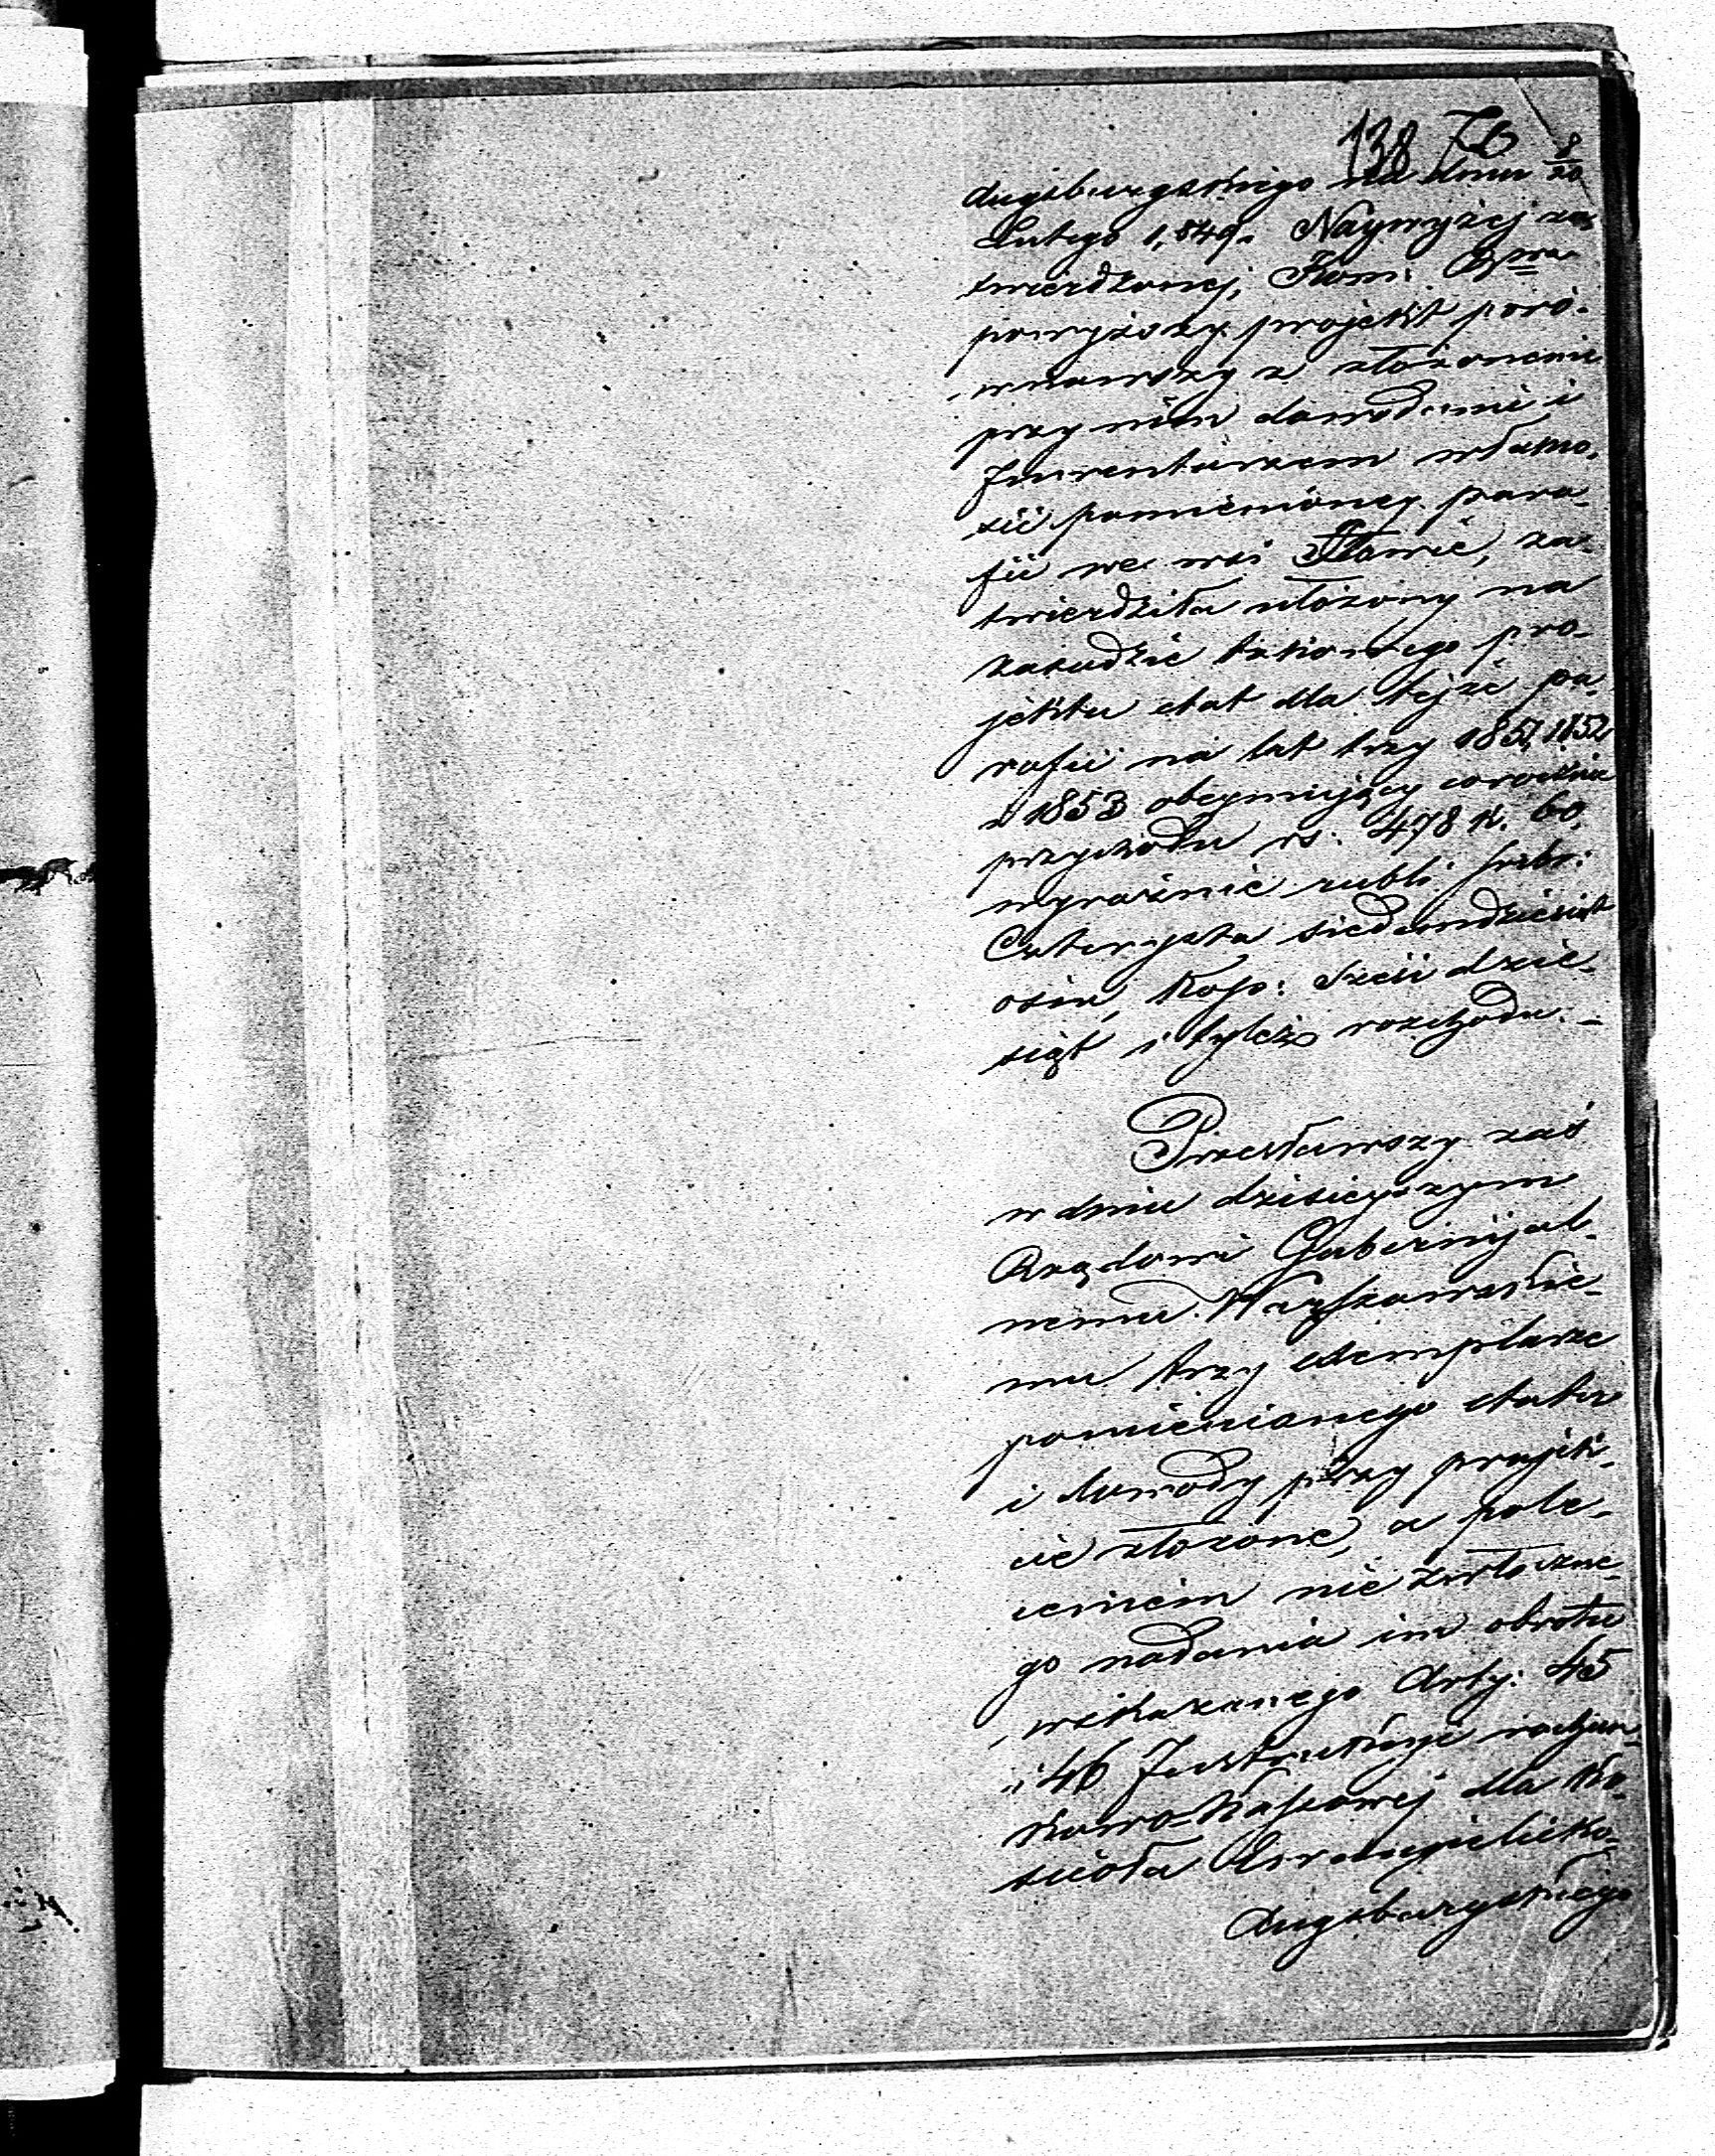 138 76
Augsburgskiego na dniu 8/20
Lutego 1,849. Naywyżej za
twierdzonej, Kom: Rząwa
powyższy projekt poró-
wnawszy z złożonemi
przy nim dowodami i
Inwentarzem własno-
ści pomienioney para-
fii we wsi Iłowie, za-
twierdziła ułożony na
zasadzie takowego pro-
jektu etat dla tejże pa-
rafii na lat trzy 1851, 1852
i 1853 obeymujący corocznie
przychodu rs: 478 k. 60.
wyraźnie rubli srebr:
Czterysta siedmdziesiąt
osim, Kop: sześćdzie-
siąt i tyleż rozchodu. –
Przesławszy zaś
w dniu dzisieyszym
Rządowi Gubernijal-
nemu Warszawskie-
mu trzy exemplarze
pomienionego etatu
i dowody przy projek-
cie złożone, z pole-
ceniem nie zwłoczne-
go nadania im obrotu
wskazanego Arty: 45
i 46 Instrukcyi rachun-
kowo-Kassowej dla Ko-
ścioła Ewangielicko-
Augsburgskiego